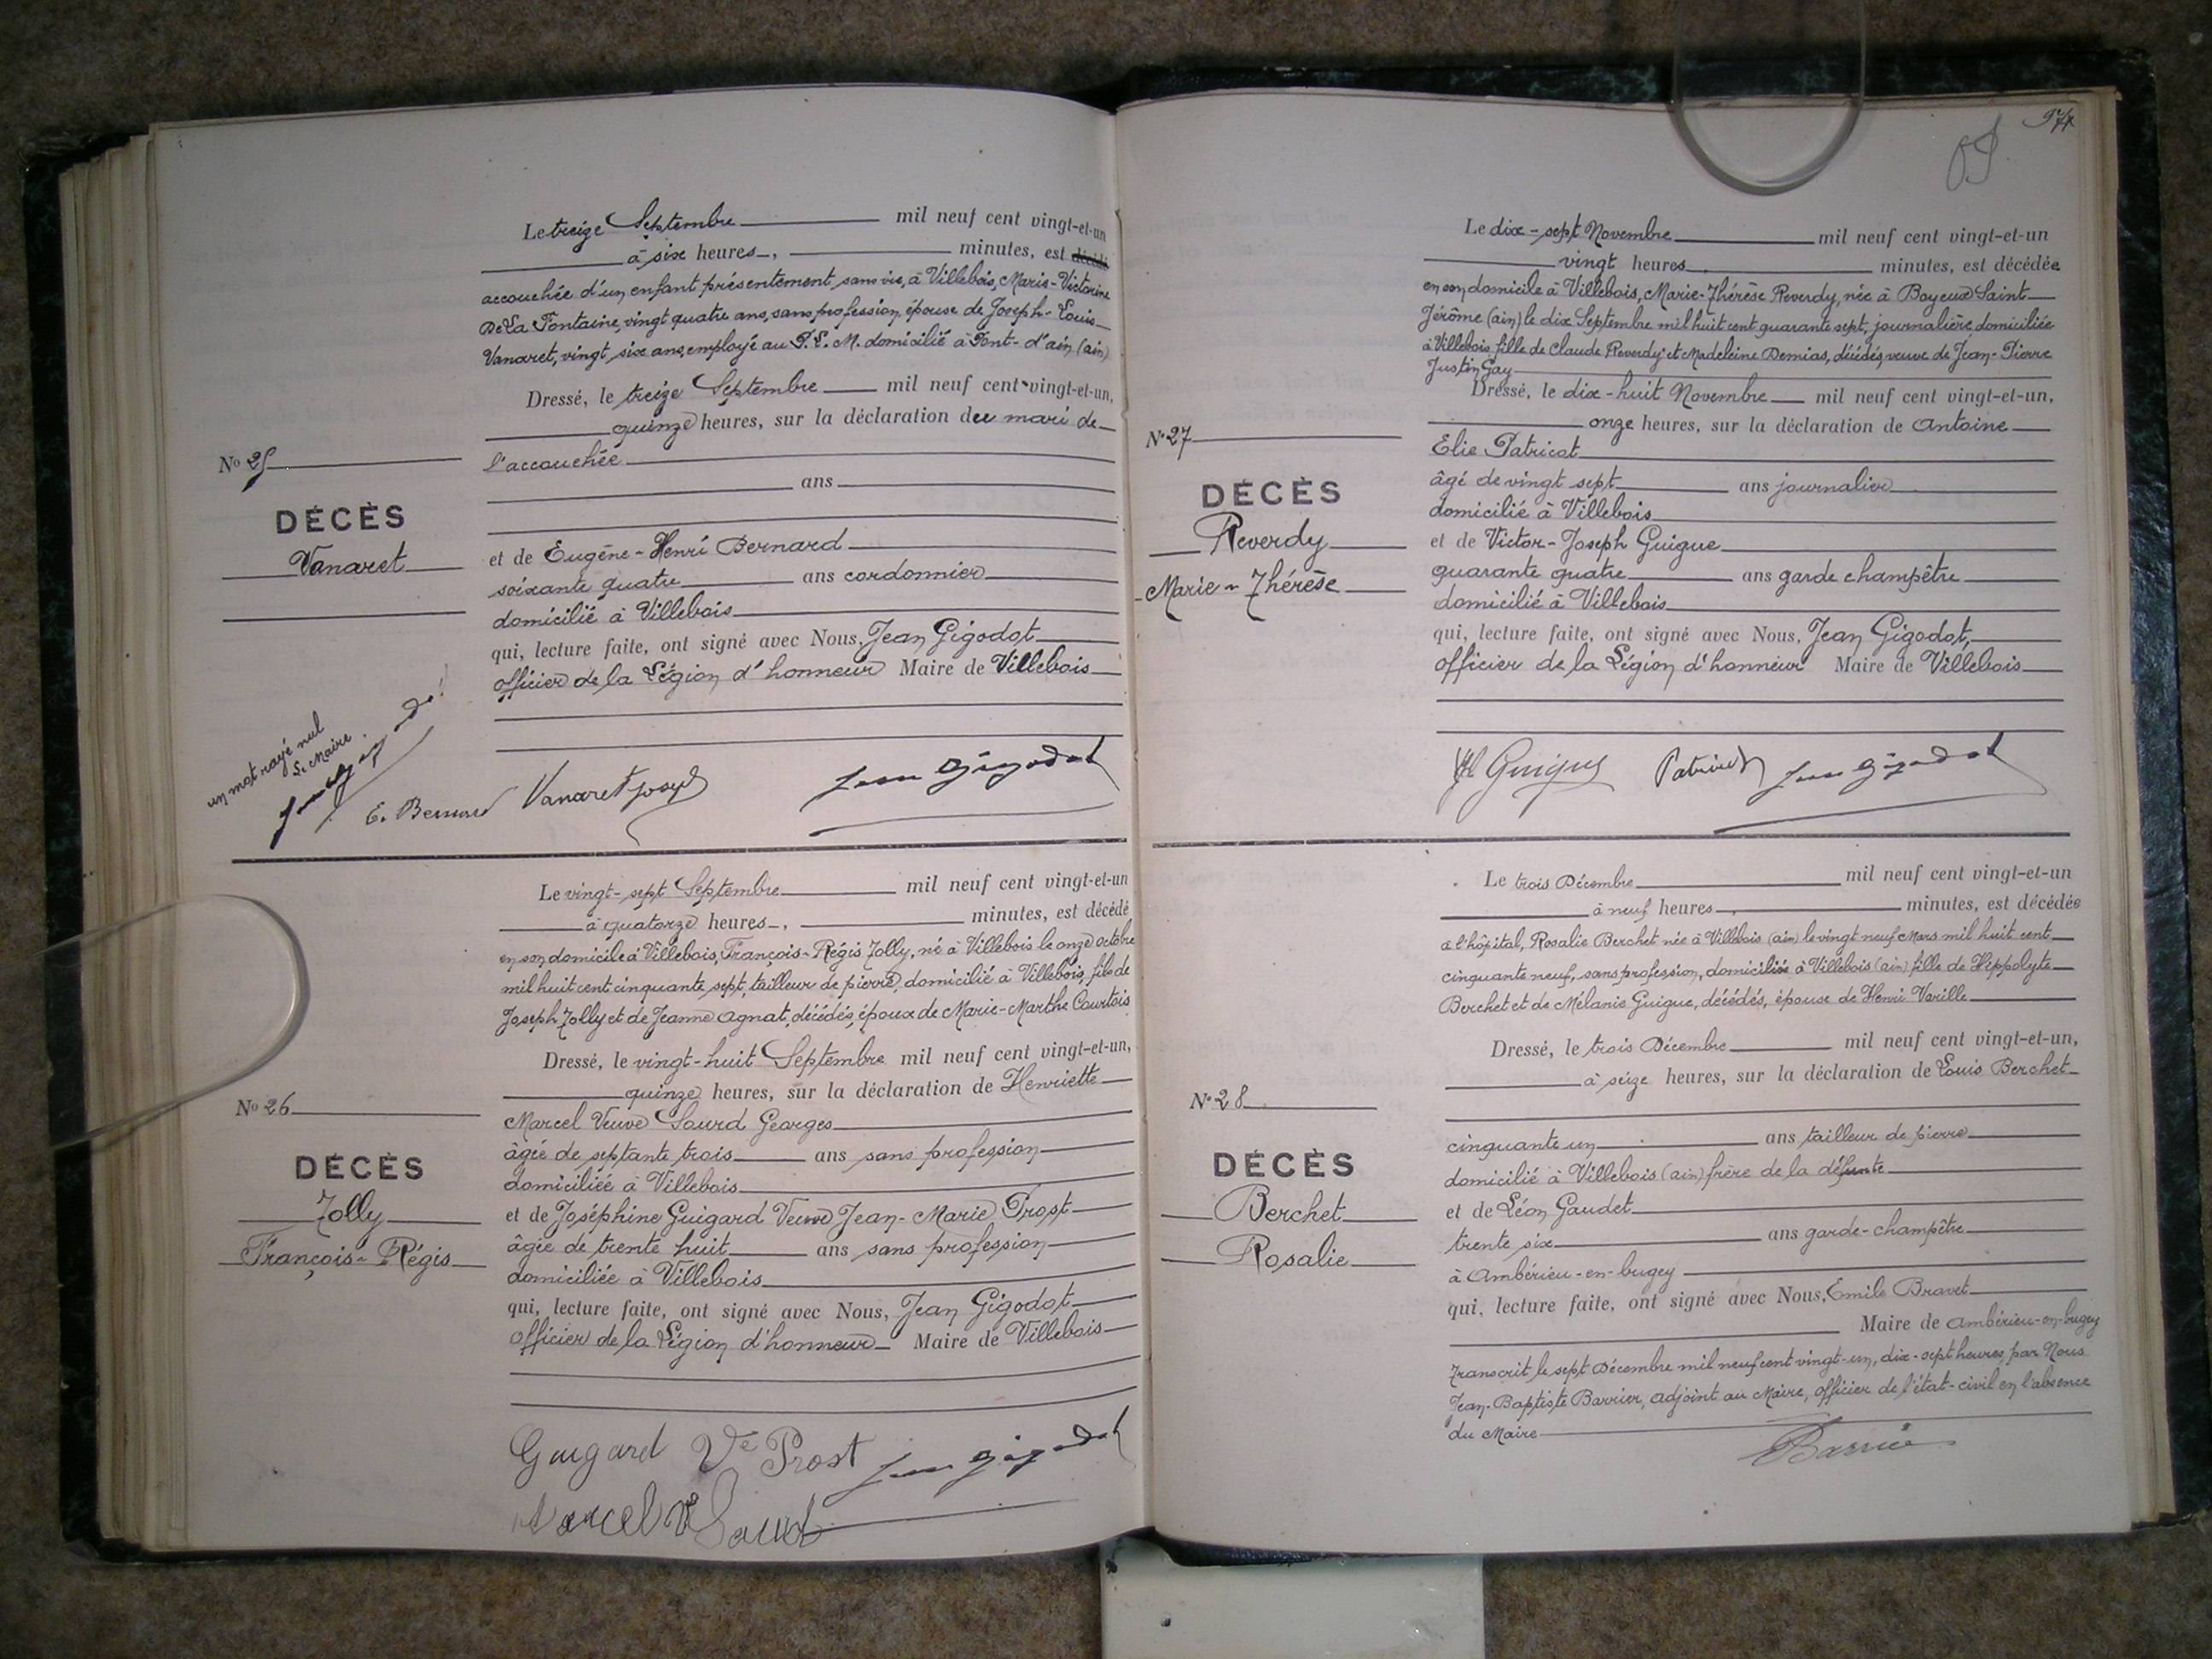 Le treize Septembre mil neuf cent vingt-et-un
à six heures, minutes, est décédé
accouchée d'un enfant présentement sans vie, à Villebois, Marie-Victorine
De La Fontaine, vingt quatre ans, sans profession, épouse de Joseph-Louis
Vanaret, vingt six ans, employé au P.L.M. domicilié à Pont-d'ain (ain)
Dressé, le treize Septembre mil neuf cent vingt-et-un,
quinze heures, sur la déclaration du mari de
l'accouchée
ans
et de Eugène-Henri Bernard
soixante quatre ans cordonnier
domicilié à Villebois
qui, lecture faite, ont signé avec Nous, Jean Gigodot
officier de la Légion d'honneur Maire de Villebois
No 25
DÉCÈS
Vanaret
un mot rayé nul
Le Maire
E. Bernard Vanaret Joseph Jean Gigodot
Le vingt-sept Septembre mil neuf cent vingt-et-un
à quatorze heures, minutes, est décédé
en son domicile à Villebois, François-Régis Jolly, né à Villebois le onze octobre
mil huit cent cinquante sept, tailleur de pierre, domicilié à Villebois, fils de
Joseph Jolly et de Jeanne Agnat, décédés, époux de Marie-Marthe Courtois
Dressé, le vingt-huit Septembre mil neuf cent vingt-et-un,
quinze heures, sur la déclaration de Henriette
Marcel Veuve Sourd Georges
âgée de septante trois ans sans profession
domiciliée à Villebois
et de Joséphine Guigard Veuve Jean-Marie Prost
âgée de trente huit ans sans profession
domiciliée à Villebois
qui, lecture faite, ont signé avec Nous, Jean Gigodot
officier de la Légion d'honneur Maire de Villebois
No 26
DÉCÈS
Jolly
François-Régis
Guigard Ve Prost Jean Gigodot
Marcel Ve Sourd
94
Le dix-sept Novembre mil neuf cent vingt-et-un
vingt heures minutes, est décédée
en son domicile à Villebois, Marie-Thérèse Reverdy, née à Boyeux Saint
Jérôme (ain) le dix Septembre mil huit cent quarante sept, journalière domiciliée
à Villebois, fille de Claude Reverdy et Madeleine Demias, décédés, veuve de Jean-Pierre
Justin Gay
Dressé, le dix-huit Novembre mil neuf cent vingt-et-un,
onze heures, sur la déclaration de Antoine
Elie Patricot
âgé de vingt sept ans journalier
domicilié à Villebois
et de Victor-Joseph Guigue
quarante quatre ans garde champêtre
domicilié à Villebois
qui, lecture faite, ont signé avec Nous, Jean Gigodot,
officier de la Légion d'honneur Maire de Villebois
No 27
DÉCÈS
Reverdy
Marie-Thérèse
Guigue Patricot Jean Gigodot
Le trois Décembre mil neuf cent vingt-et-un
à neuf heures minutes, est décédée
à l'hôpital, Rosalie Berchet née à Villebois (ain) le vingt neuf Mars mil huit cent
cinquante neuf, sans profession, domiciliée à Villebois (ain) fille de Hippolyte
Berchet et de Mélanie Guigue, décédés, épouse de Henri Varille
Dressé, le trois Décembre mil neuf cent vingt-et-un,
à seize heures, sur la déclaration de Louis Berchet
cinquante un ans tailleur de pierre
domicilié à Villebois (ain) frère de la défunte
et de Léon Gaudet
trente six ans garde-champêtre
à Ambérieu-en-bugey
qui, lecture faite, ont signé avec Nous, Émile Bravet
Maire de Ambérieu-en-bugey
Transcrit le sept Décembre mil neuf cent vingt-un, dix-sept heures, par Nous
Jean-Baptiste Barrier, adjoint au Maire, officier de l'état-civil en l'absence
du Maire
No 28
DÉCÈS
Berchet
Rosalie
Barrier